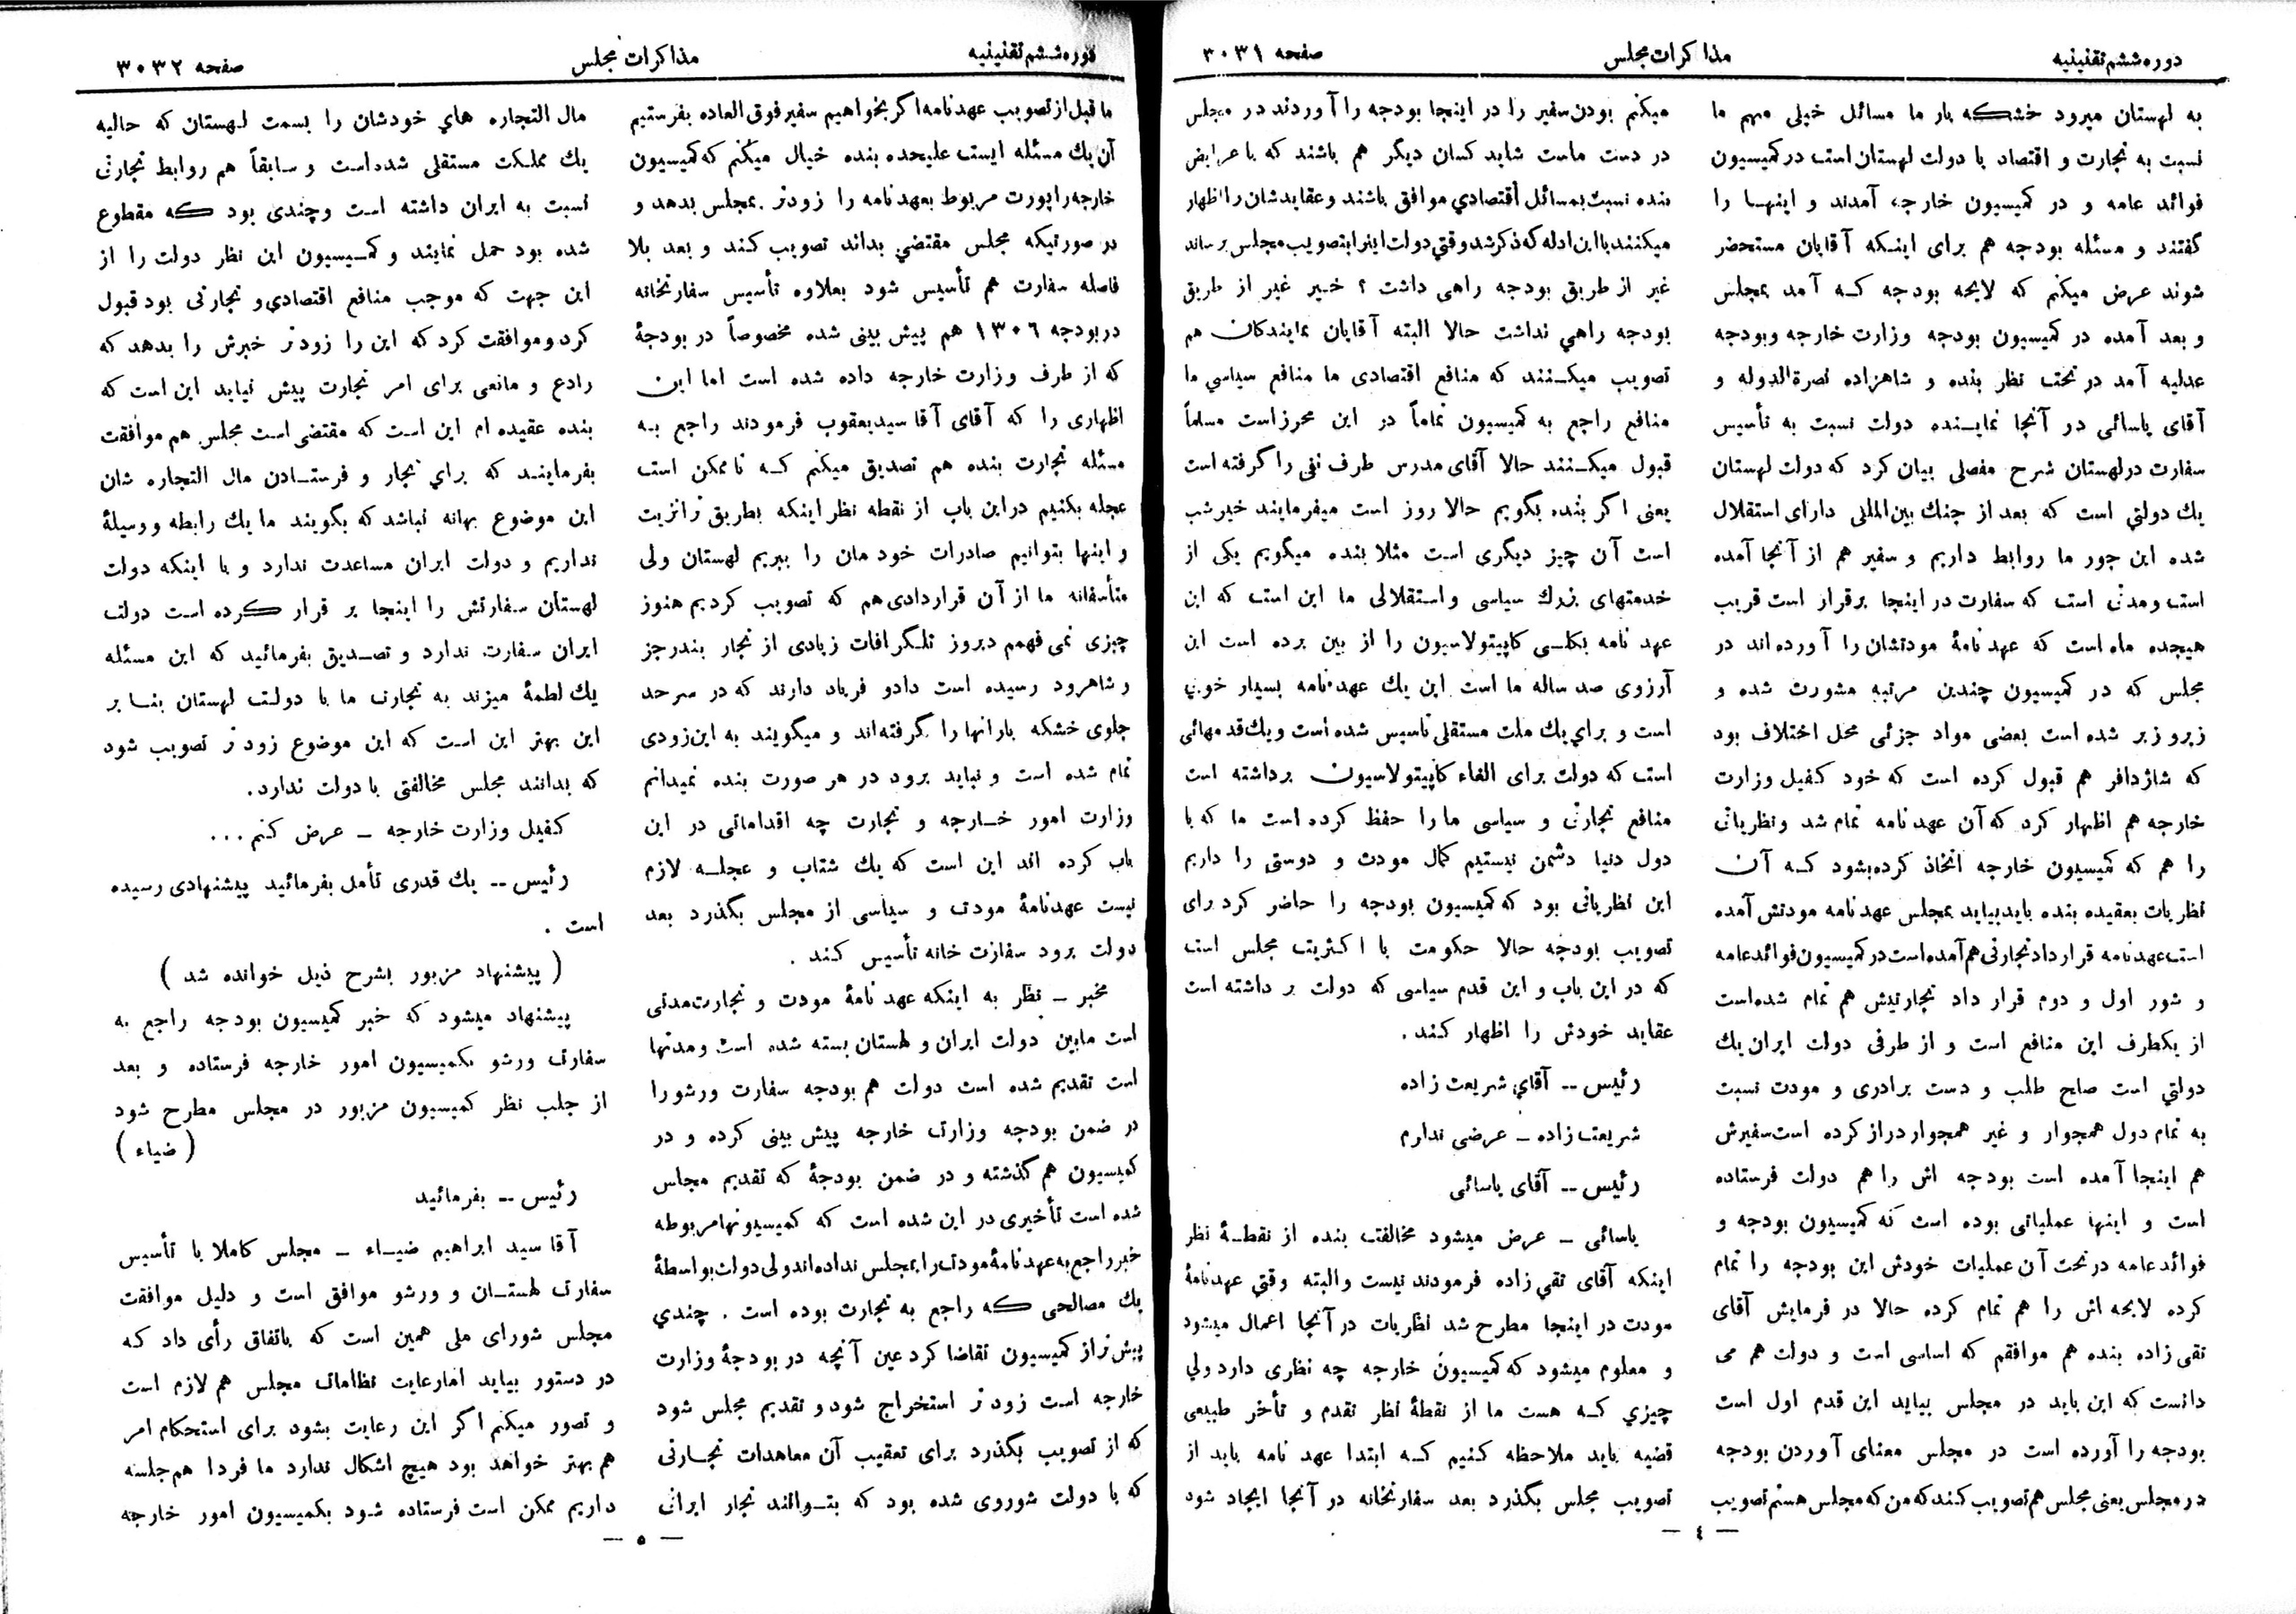 دوره ششم تقنینیه
مذاکرات مجلس
صفحه ۳۰۳۱
به لهستان میرود خشکه بار ما مسائل خیلی مهم ما
نسبت به تجارت و اقتصاد با دولت لهستان است در کمیسیون
فوائد عامه و در کمیسیون خارجه آمدند و اینها را
گفتند و مسئله بودجه هم برای اینکه آقایان مستحضر
شوند عرض میکنم که لایحه بودجه که آمد بمجلس
و بعد آمده در کمیسیون بودجه وزارت خارجه و بودجه
عدلیه آمد در تحت نظر بنده و شاهزاده نصرةالدوله و
آقای یاسائی در آنجا نماینده دولت نسبت به تأسیس
سفارت در لهستان شرح مفصلی بیان کرد که دولت لهستان
یك دولتی است که بعد از جنك بین المللی دارای استقلال
شده این جور ما روابط داریم و سفیر هم از آنجا آمده
است و مدتی است که سفارت در اینجا برقرار است قریب
هیجده ماه است که عهد نامهٔ مودتشان را آورده اند در
مجلس که در کمیسیون چندین مرتبه مشورت شده و
زیر و زبر شده است بعضی مواد جزئی محل اختلاف بود
که شاژدافر هم قبول کرده است که خود کفیل وزارت
خارجه هم اظهار کرد که آن عهد نامه تمام شد و نظریاتی
را هم که کمیسیون خارجه اتخاذ کرده بشود که آن
نظریات بعقیده بنده باید بیاید بمجلس عهد نامه مودتش آمده
است عهدنامه قرارداد تجارتی هم آمده است در کمیسیون فوائد عامه
و شور اول و دوم قرار داد تجارتیش هم تمام شده است
از یکطرف این منافع است و از طرفی دولت ایران یك
دولتی است صلح طلب و دست برادری و مودت نسبت
به تمام دول همجوار و غیر همجوار دراز کرده است سفیرش
هم اینجا آمده است بودجه اش را هم دولت فرستاده
است و اینها عملیاتی بوده است که کمیسیون بودجه و
فوائد عامه در تحت آن عملیات خودش این بودجه را تمام
کرده لایحه اش را هم تمام کرده حالا در فرمایش آقای
تقی زاده بنده هم موافقم که اساسی است و دولت هم می
دانست که این باید در مجلس بیاید این قدم اول است
بودجه را آورده است در مجلس معنای آوردن بودجه
در مجلس یعنی مجلس هم تصویب کند که من که مجلس هستم تصویب
میکنم بودن سفیر را در اینجا بودجه را آوردند در مجلس
در دست ماست شاید کسان دیگر هم باشند که با عرایض
بنده نسبت بمسائل اقتصادي موافق باشند و عقایدشان را اظهار
میکنند با این ادله که ذکر شد وقتی دولت اینرا بتصویب مجلس برساند
غیر از طریق بودجه راهی داشت ؟ خیر غیر از طریق
بودجه راهي نداشت حالا البته آقایان نمایندگان هم
تصویب میکنند که منافع اقتصادی ما منافع سیاسي ما
منافع راجع به کمیسیون تماماً در این محرز است مسلماً
قبول میکنند حالا آقای مدرس طرف نفی را گرفته است
یعنی اگر بنده بگویم حالا روز است میفرمایند خیر شب
است آن چیز دیگری است مثلا بنده میگویم یکی از
خدمتهای بزرك سیاسی و استقلالی ما این است که این
عهد نامه بکلی کاپیتولاسیون را از بین برده است این
آرزوی صد ساله ما است این یك عهد نامه بسیار خوبی
است و برای یك ملت مستقلی تاسیس شده است و یك قدمهائی
است که دولت برای الغاء کاپیتولاسیون برداشته است
منافع تجارتی و سیاسی ما را حفظ کرده است ما که با
دول دنیا دشمن نیستیم کمال مودت و دوستی را داریم
این نظریاتی بود که کمیسیون بودجه را حاضر کرد برای
تصویب بودجه حالا حکومت با اکثریت مجلس است
که در این باب و این قدم سیاسی که دولت بر داشته است
عقاید خودش را اظهار کند .
رئیس -- آقاي شریعت زاده
شریعت زاده – عرضی ندارم
رئیس -- آقای یاسائی
یاسائی – عرض میشود مخالفت بنده از نقطهٔ نظر
اینکه آقای تقی زاده فرمودند نیست والبته وقتی عهدنامهٔ
مودت در اینجا مطرح شد نظریات در آنجا اعمال میشود
و معلوم میشود که کمیسیون خارجه چه نظری دارد ولي
چیزي که هست ما از نقطهٔ نظر تقدم و تأخر طبیعی
قضیه باید ملاحظه کنیم که ابتدا عهد نامه باید از
تصویب مجلس بگذرد بعد سفارتخانه در آنجا ایجاد شود
— ٤ —
دوره ششم تقنینیه
مذاکرات مجلس
صفحه ۳۰۳۲
ما قبل از تصویب عهدنامه اگر بخواهیم سفیر فوق العاده بفرستیم
آن یك مسئله ایست علیحده بنده خیال میکنم که کمیسیون
خارجه راپورت مربوط بعهدنامه را زودتر بمجلس بدهد و
در صورتیکه مجلس مقتضي بداند تصویب کند و بعد بلا
فاصله سفارت هم تأسیس شود بعلاوه تأسیس سفارتخانه
در بودجه ۱۳۰٦ هم پیش بینی شده مخصوصاً در بودجهٔ
که از طرف وزارت خارجه داده شده است اما این
اظهاری را که آقای آقا سید یعقوب فرمودند راجع به
مسئله تجارت بنده هم تصدیق میکنم که ناممکن است
عجله بکنیم در این باب از نقطه نظر اینکه بطریق ترانزیت
و اینها بتوانیم صادرات خودمان را ببریم لهستان ولی
متأسفانه ما از آن قراردادی هم که تصویب کردیم هنوز
چیزی نمی فهمم دیروز تلگرافات زیادی از تجار بندرجز
و شاهرود رسیده است دادو فریاد دارند که در سرحد
جلوی خشکه بارانها را گرفته اند و میگویند به این زودی
تمام شده است و نباید برود در هر صورت بنده نمیدانم
وزارت امور خارجه و تجارت چه اقداماتی در این
باب کرده اند این است که یك شتاب و عجله لازم
نیست عهدنامهٔ مودت و سیاسی از مجلس بگذرد بعد
دولت برود سفارت خانه تأسیس کند .
مخبر – نظر به اینکه عهد نامهٔ مودت و تجارت مدتی
است مابین دولت ایران و لهستان بسته شده است و مدتها
است تقدیم شده است دولت هم بودجه سفارت ورشو را
در ضمن بودجه وزارت خارجه پیش بینی کرده و در
کمیسیون هم گذشته و در ضمن بودجهٔ که تقدیم مجلس
شده است تأخیری در این شده است که کمیسیونها مربوطه
خبر راجع به عهدنامهٔ مودت را بمجلس نداده اند ولی دولت بواسطهٔ
یك مصالحی که راجع به تجارت بوده است . چندي
پیش تر از کمیسیون تقاضا کرد عین آنچه در بودجهٔ وزارت
خارجه است زودتر استخراج شود و تقدیم مجلس شود
که از تصویب بگذرد برای تعقیب آن معاهدات تجارتی
که با دولت شوروی شده بود که بتوانند تجار ایرانی
مال التجاره هاي خودشان را بسمت لهستان که حالیه
یك مملکت مستقلی شده است و سابقاً هم روابط تجارتی
نسبت به ایران داشته است و چندی بود که مقطوع
شده بود حمل نمایند و کمیسیون این نظر دولت را از
این جهت که موجب منافع اقتصادي و تجارتی بود قبول
کرد و موافقت کرد که این را زودتر خبرش را بدهد که
رادع و مانعی برای امر تجارت پیش نیاید این است که
بنده عقیده ام این است که مقتضی است مجلس هم موافقت
بفرمایند که براي تجار و فرستادن مال التجاره شان
این موضوع بهانه نباشد که بگویند ما یك رابطه و وسیلهٔ
نداریم و دولت ایران مساعدت ندارد و با اینکه دولت
لهستان سفارتش را اینجا بر قرار کرده است دولت
ایران سفارت ندارد و تصدیق بفرمائید که این مسئله
یك لطمهٔ میزند به تجارت ما با دولت لهستان بنا بر
این بهتر این است که این موضوع زودتر تصویب شود
که بدانند مجلس مخالفتی با دولت ندارد .
کفیل وزارت خارجه – عرض کنم ...
رئیس -- یك قدری تأمل بفرمائید پیشنهادی رسیده
است .
( پیشنهاد مزبور بشرح ذیل خوانده شد )
پیشنهاد میشود که خبر کمیسیون بودجه راجع به
سفارت ورشو بکمیسیون امور خارجه فرستاده و بعد
از جلب نظر کمیسیون مزبور در مجلس مطرح شود
( ضیاء )
رئیس -- بفرمائید
آقا سید ابراهیم ضیاء – مجلس کاملا با تأسیس
سفارت لهستان و ورشو موافق است و دلیل موافقت
مجلس شورای ملی همین است که باتفاق رأی داد که
در دستور بیاید اما رعایت نظامات مجلس هم لازم است
و تصور میکنم اگر این رعایت بشود برای استحکام امر
هم بهتر خواهد بود هیچ اشکال ندارد ما فردا هم جلسه
داریم ممکن است فرستاده شود بکمیسیون امور خارجه
— ٥ —